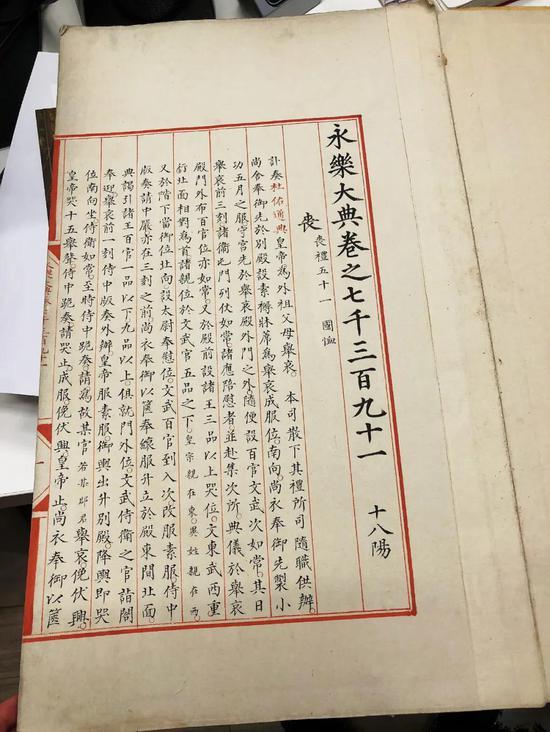 永樂大典卷之七千三百九十一 十八陽
喪 喪禮五十一 國恤
訃奏杜佑通典皇帝為外祖父母舉哀。本司散下其禮所司隨職供辦。
尚舍奉御先於別殿設素褥牀席為舉哀成服位。南向尚衣奉御先製小
功五月之服守宮先於舉哀殿外門之外隨便設百官文武次如常。其日
舉哀前三刻諸衛屯門列仗如常。諸應陪慰者並赴集次所。典儀於舉哀
殿門外布百官位亦如常。又於殿前設諸王三品以上哭位。文東武西重
行北面相對為首諸親位於文武官五品之下。皇宗親在東異姓親在西
又於階下當御位北向設太尉奉慰位。文武百官到入次改服素服侍中
版奏請中嚴亦在三刻之前尚衣奉御以篋奉縗服升立於殿東間北面。
典謁引諸王百官一品以下九品以上。俱就門外位。文武侍衛之官詣閤
奉迎舉哀前一刻侍中版奏外辦皇帝素服御輿出升別殿。降輿即哭
位南向坐侍衛如常。至時侍中跪奏。請為故某官若某郡君舉哀俛伏興。
皇帝哭十五舉聲侍中跪奏請哭止。成服俛伏興。皇帝止。尚衣奉御以篋